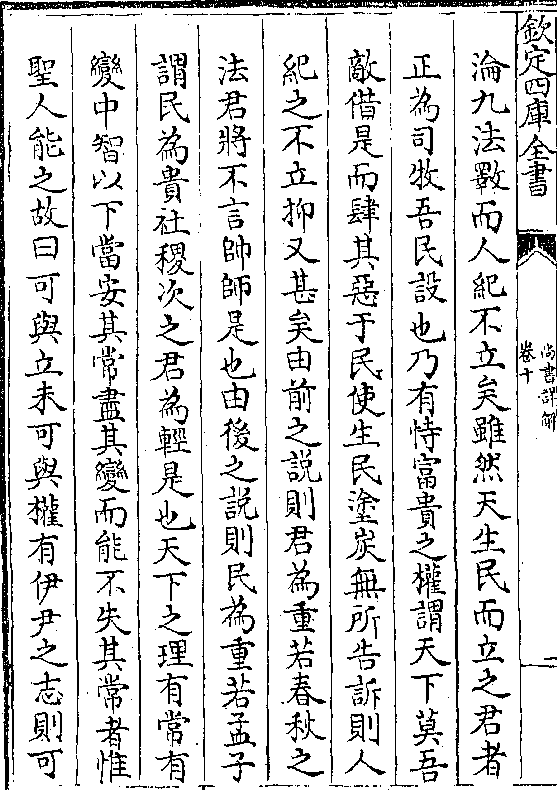 欽定四庫全書
尚書詳解
卷十
一
淪九法斁而人紀不立矣雖然天生民而立之君者
正為司牧吾民設也乃有恃富貴之權謂天下莫吾
敵借是而肆其惡于民使生民塗炭無所告訴則人
紀之不立抑又甚矣由前之説則君為重若春秋之
法君將不言帥師是也由後之説則民為重若孟子
謂民為貴社稷次之君為輕是也天下之理有常有
變中智以下當安其常盡其變而能不失其常者惟
聖人能之故曰可與立未可與權有伊尹之志則可